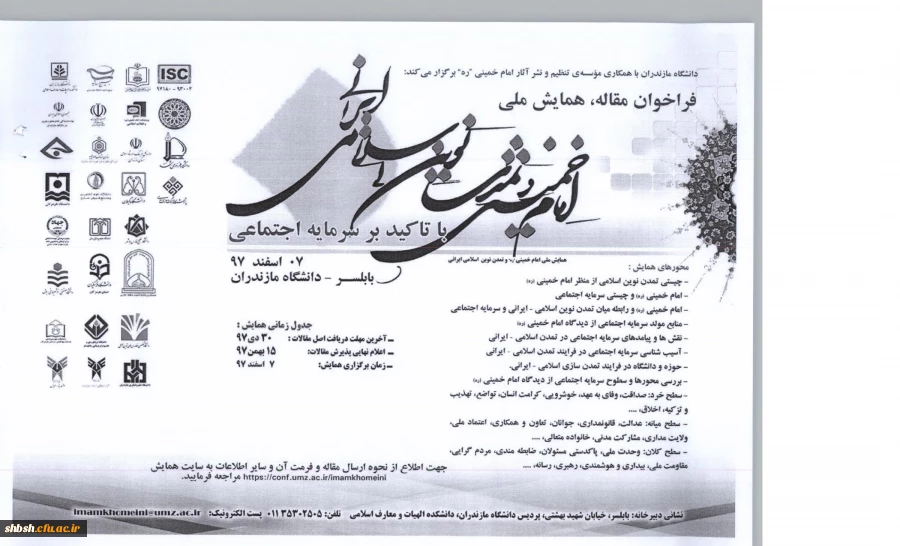 دانشگاه مازندران با همکاری مؤسسه‌ی تنظیم و نشر آثار امام خمینی "ره" برگزار می‌کند:
فراخوان مقاله، همایش ملی
امام خمینی و تمدن نوین اسلامی ایرانی
با تاکید بر سرمایه اجتماعی
همایش ملی امام خمینی (ره) و تمدن نوین اسلامی ایرانی
۰۷ اسفند ۹۷
بابلسر - دانشگاه مازندران
محورهای همایش :
- چیستی تمدن نوین اسلامی از منظر امام خمینی (ره)
- امام خمینی (ره) و چیستی سرمایه اجتماعی
- امام خمینی (ره) و رابطه میان تمدن نوین اسلامی - ایرانی و سرمایه اجتماعی
- منابع مولد سرمایه اجتماعی از دیدگاه امام خمینی (ره)
- نقش ها و پیامدهای سرمایه اجتماعی در تمدن اسلامی - ایرانی
- آسیب شناسی سرمایه اجتماعی در فرایند تمدن اسلامی - ایرانی
- حوزه و دانشگاه در فرایند تمدن سازی اسلامی - ایرانی.
- بررسی محورها و سطوح سرمایه اجتماعی از دیدگاه امام خمینی (ره)
- سطح خرد: صداقت، وفای به عهد، خوشرویی، کرامت انسان، تواضع، تهذیب
و تزکیه، اخلاق، ....
- سطح میانه: عدالت، قانونمداری، جوانان، تعاون و همکاری، اعتماد ملی،
ولایت مداری، مشارکت مدنی، خانواده متعالی، ....
- سطح کلان: وحدت ملی، پاکدستی مسئولان، ضابطه مندی، مردم گرایی،
مقاومت ملی، بیداری و هوشمندی، رهبری، رسانه، ....
جدول زمانی همایش :
- آخرین مهلت دریافت اصل مقالات : ۳۰ دی ۹۷
- اعلام نهایی پذیرش مقالات: ۱۵ بهمن ۹۷
- زمان برگزاری همایش: ۷ اسفند ۹۷
ISC
۹۷۱۸۰ - ۹۳۰۰۲
جهت اطلاع از نحوه ارسال مقاله و فرمت آن و سایر اطلاعات به سایت همایش
https://conf.umz.ac.ir/imamkhomeini مراجعه فرمایید.
نشانی دبیرخانه: بابلسر، خیابان شهید بهشتی، پردیس دانشگاه مازندران، دانشکده الهیات و معارف اسلامی تلفن: ۰۱۱۳۵۳۰۲۵۰۵ پست الکترونیک: imamkhomeini@umz.ac.ir
shbsh.cfu.ac.ir